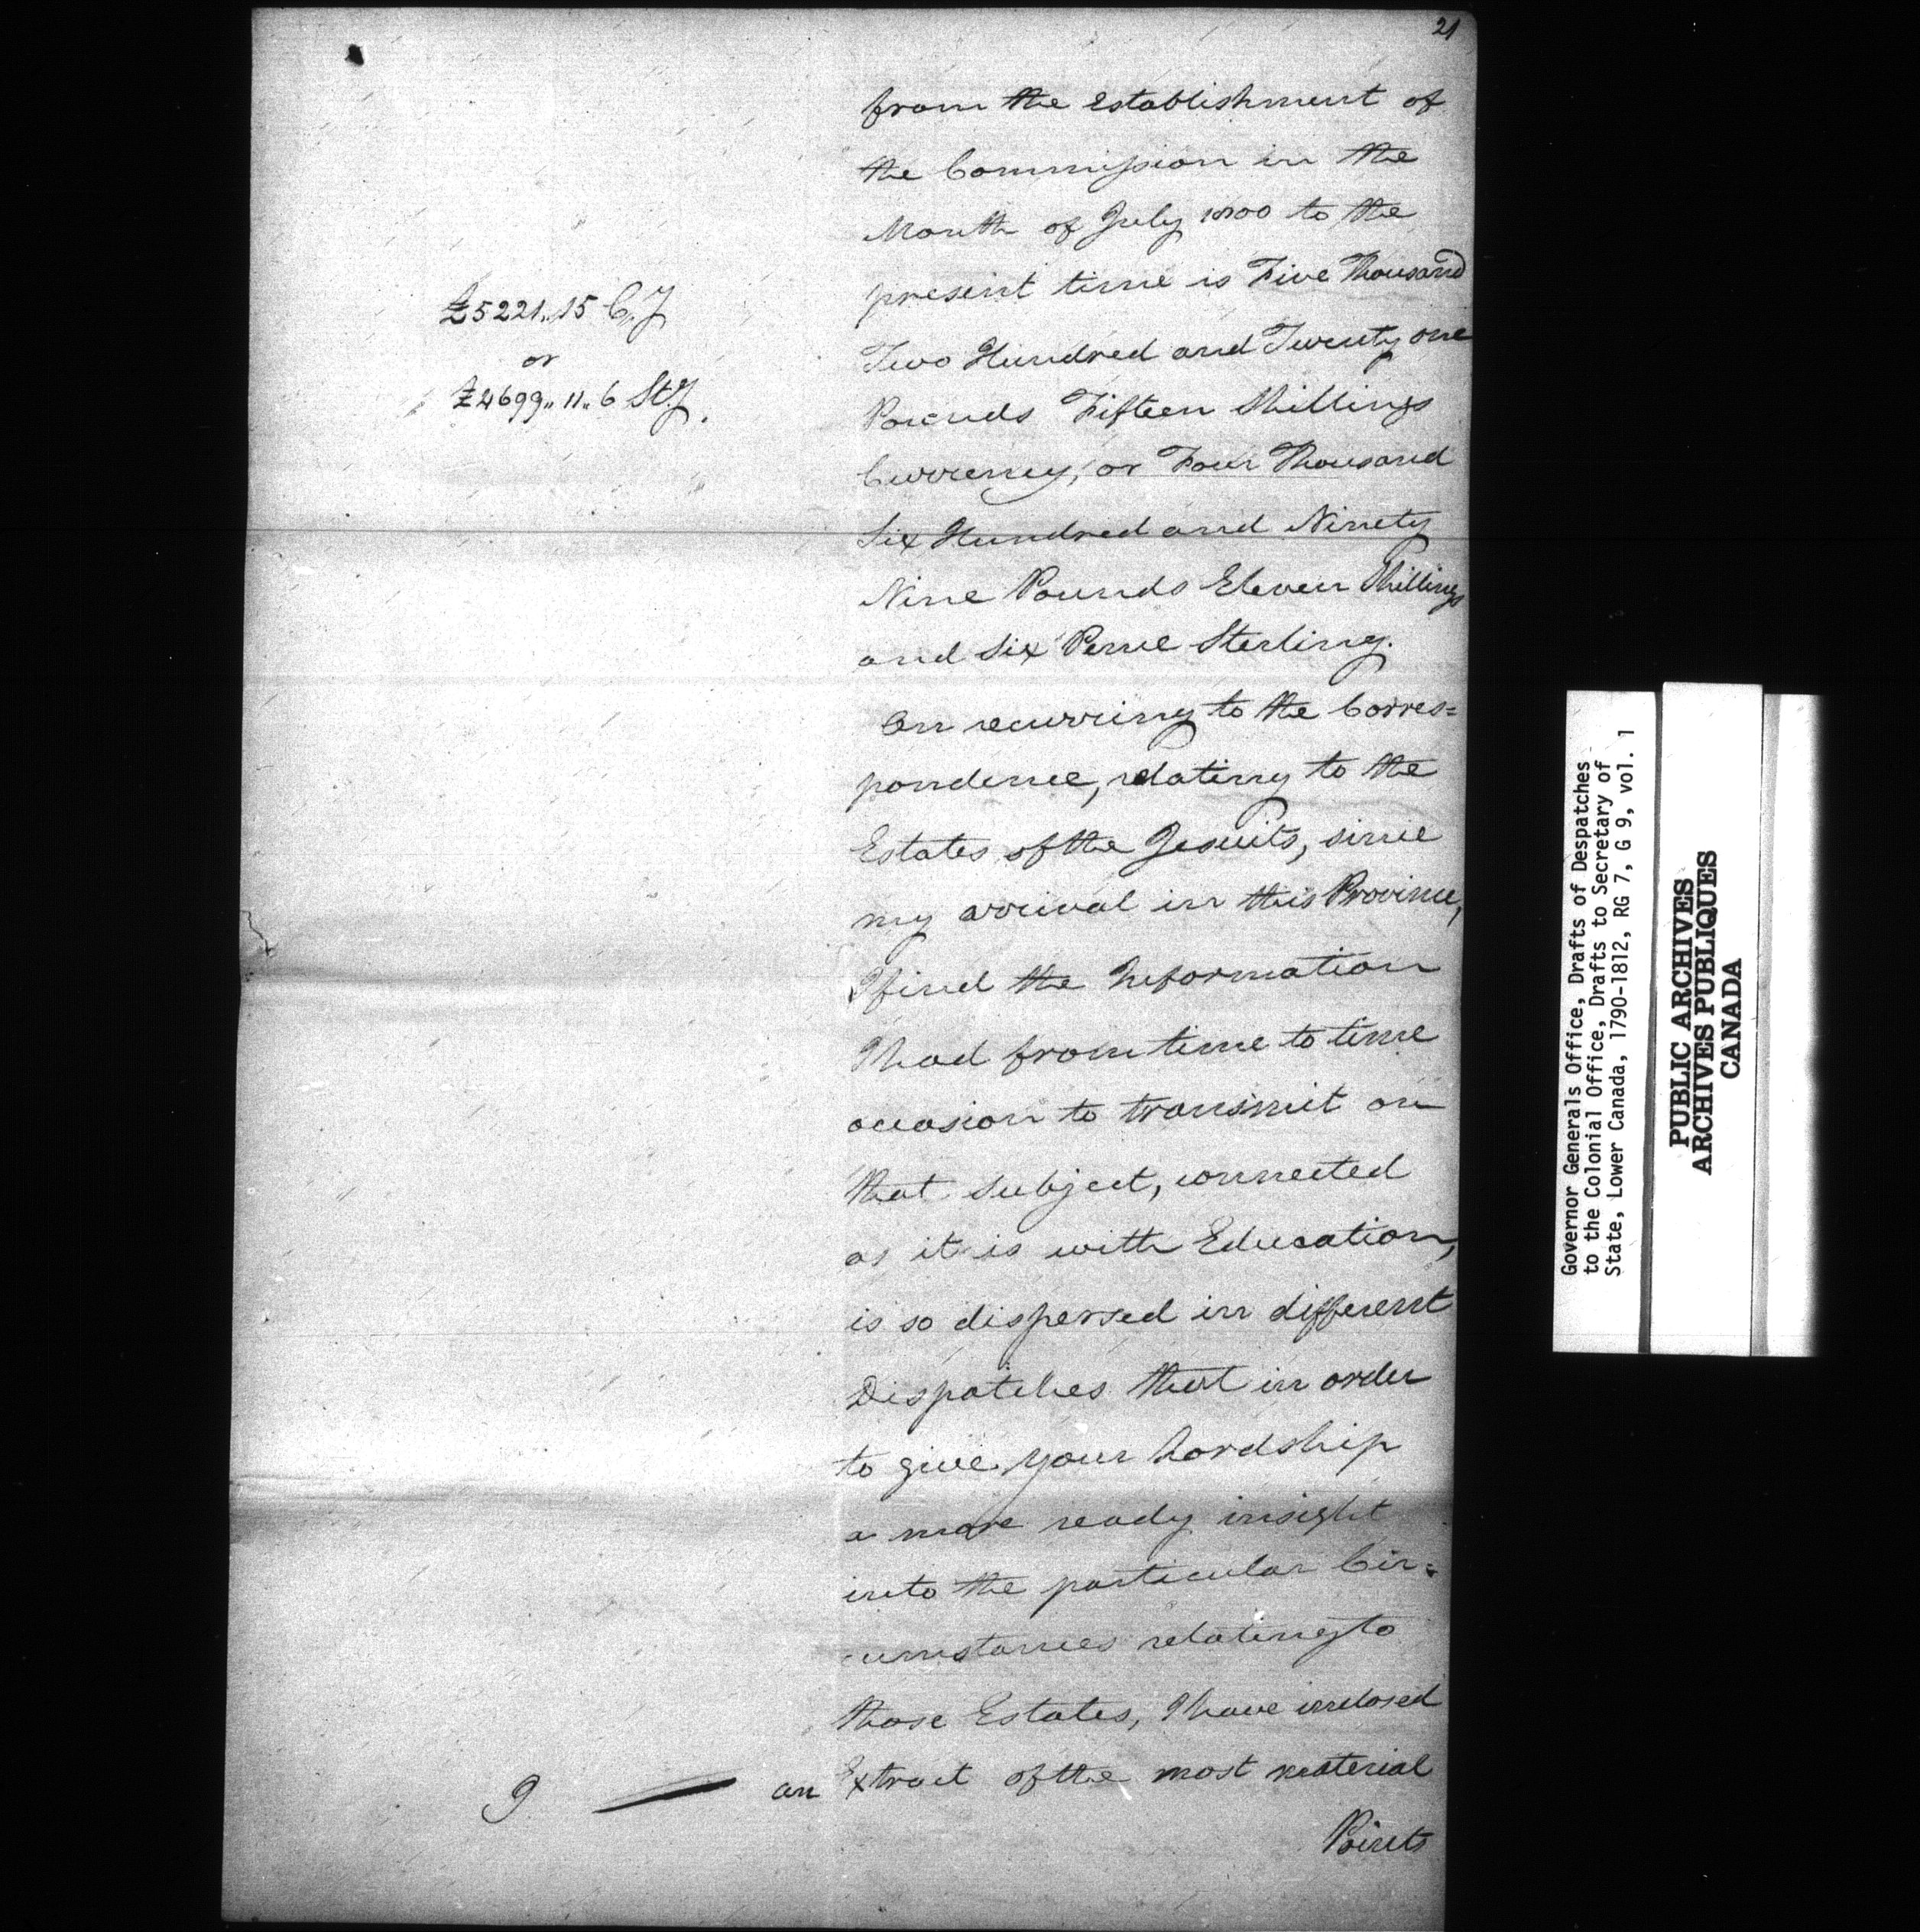 21
from the establishment of
the Commission in the
Month of July 1800 to the
present time is Five Thousand
£5221,, 15 C,y
or
£4699,, 11,, 6 Stg.
Two Hundred and Twenty one
Pounds Fifteen Shillings
Currency, or Four Thousand
Six Hundred and Ninety
Nine Pounds Eleven Shillings
and Six Pence Sterling.
On recurring to the Corres=
pondence, relating to the
Estates of the Jesuits, since
my arrival in this Province,
I find the Information
I had from time to time
occasion to transmit on
that subject, connected
as it is with Education,
is so dispersed in different
Dispatches that in order
to give your Lordship
a more ready insight
into the particular Cir=
cumstances relating to
those Estates, I have inclosed
9 — an Extract of the most material
Points
Governor Generals Office, Drafts of Despatches
to the Colonial Office, Drafts to Secretary of
State, Lower Canada, 1790-1812, RG 7, G 9, vol. 1
PUBLIC ARCHIVES
ARCHIVES PUBLIQUES
CANADA